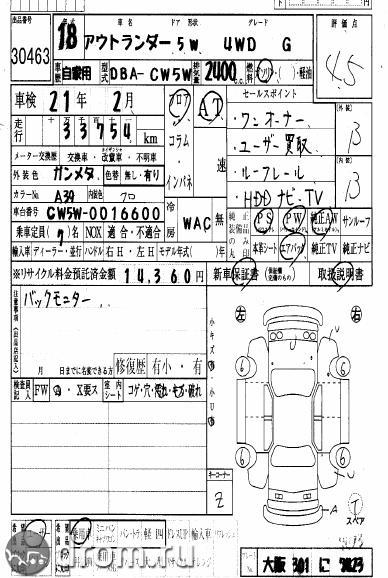 出品番号
30463
年式 車名 ドア 形状 グレード
18 アウトランダー 5W 4WD G
車歴 自家用 型式 DBA-CW5W 排気量 2400cc 燃料 ガソリン・( )・軽油
評価点
4.5
車検 21年 2月
走行 33754 km
フロア
コラム
インパネ
AT
速
セールスポイント
・ワンオーナー
・ユーザー買取
・ルーフレール
・HDDナビ、TV
外装 B
内装 B
メーター交換歴 交換車・改竄車・不明車
外装色 ガンメタ 色替 無し・有り
カラーNo. A39 内装色 クロ
車台番号 CW5W-0016600
冷房 WAC 無
純正装備品のみ丸印
PS PW 純正AW サンルーフ
本革シート エアバッグ 純正TV 純正ナビ
乗車定員(7)名 NOX 適合・不適合
輸入車 ディーラー・並行 ハンドル 右H・左H モデル年式( )年
※リサイクル料金預託済金額 14,360円
新車保証書 取扱説明書
注意事項(出品店記入)
バックモニター
月 日までに名変できる方
修復歴 有小・有
検査員記入 FW X要ス 室内シート コゲ・穴・汚れ・キズ・破れ
左 右
U
6 6
6 6
U
A
キーコーナー
2
スペア
大阪 301 に
from.ru